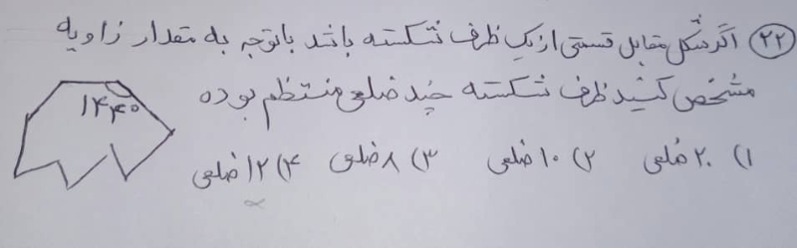 ۲۲ اگر شکل مقابل قسمتی از یک ظرف شکسته باشد باتوجه به مقدار زاویه
مشخص کنید ظرف شکسته چند ضلعی منتظم بوده
۱۴۴°
۱) ۲۰ ضلعی ۲) ۱۰ ضلعی ۳) ۸ ضلعی ۴) ۱۲ ضلعی